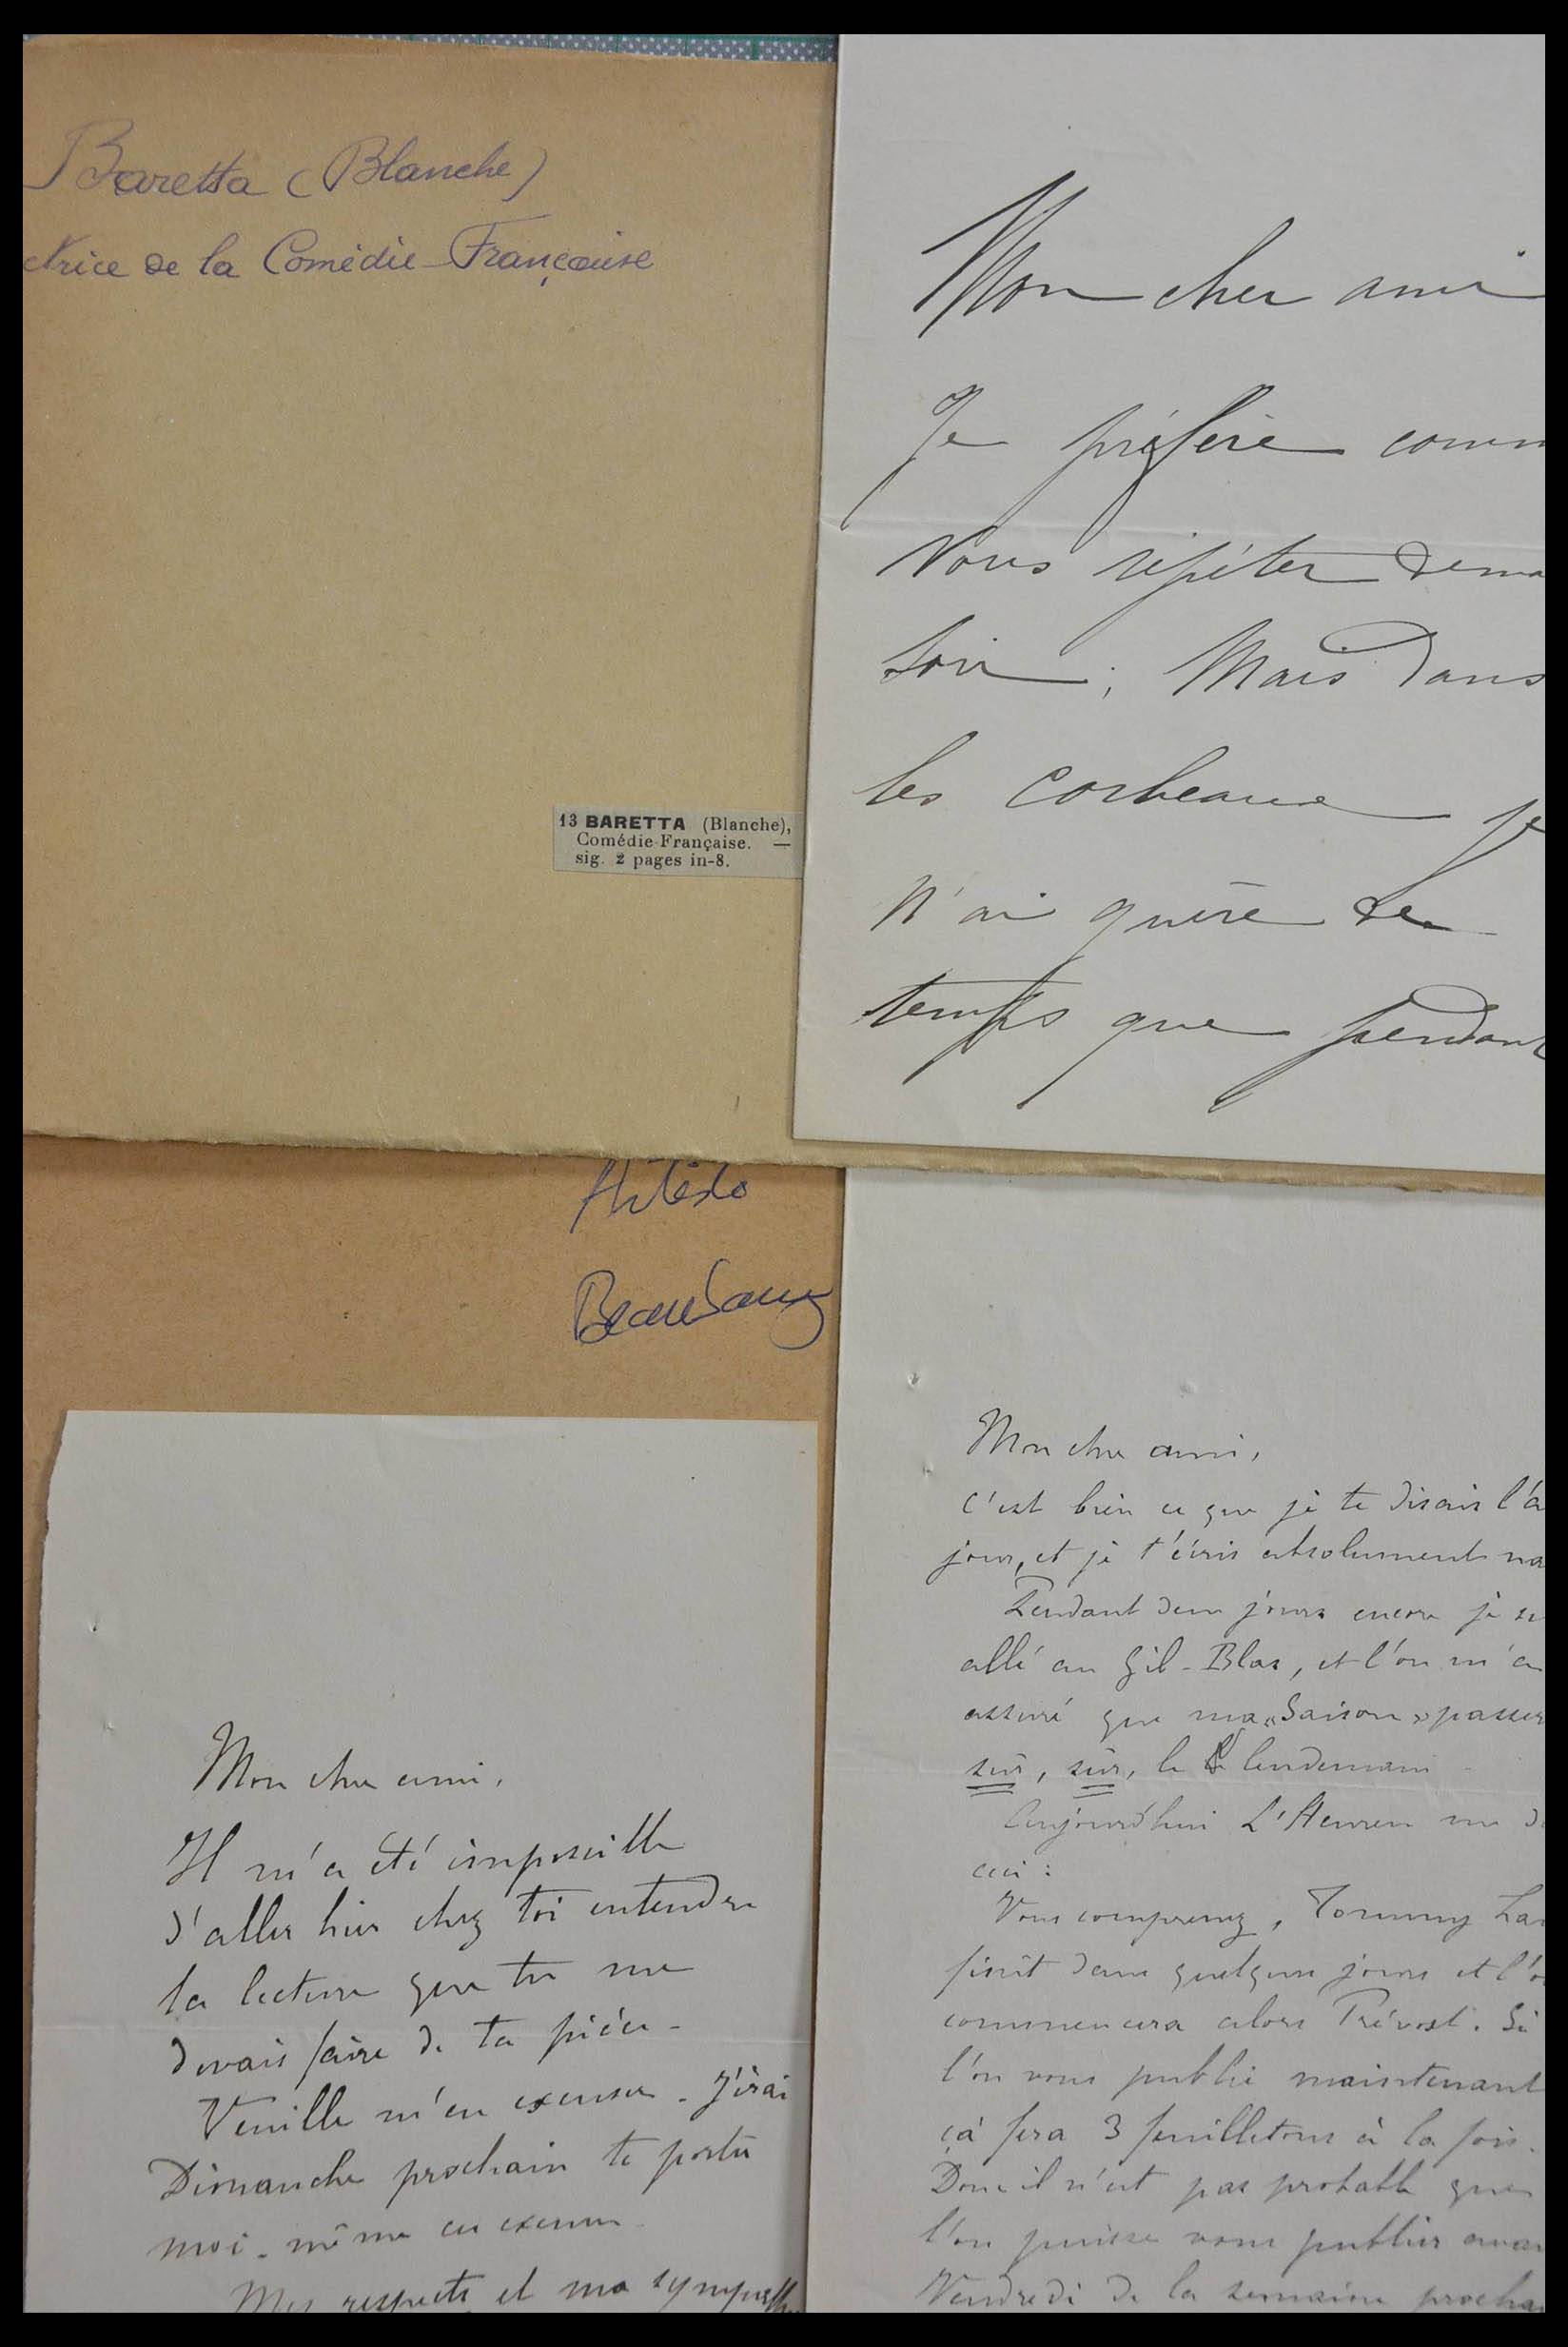 Baretta (Blanche)
ctrice de la Comédie-Française
13 BARETTA (Blanche),
Comédie-Française. —
sig. 2 pages in-8.
Mon cher ami
Je préfère comm
vous répéter dema
soir ; Mais dans
les corbeaux je
n'ai guère de
temps que pendant
Mon cher ami,
Il m'a été impossible
d'aller hier chez toi entendre
la lecture que tu me
devais faire de ta pièce -
Veuille m'en excuser - J'irai
Dimanche prochain te porter
moi-même ces excuses -
Mes respects et ma sympath
Mon cher ami,
C'est bien ce que je te disais l'a
jour, et je t'écris absolument na
Pendant deux jours encore je su
allé au Gil-Blas, et l'on m'a
assuré que ma « Saison » passer
sûr, sûr, le lendemain -
Aujourd'hui L'Heureu me d
ceci :
Vous comprenez, Tommy La
finit dans quelques jours et l'o
commencera alors Prévost. Si
l'on vous publie maintenant
ça fera 3 feuilletons à la fois.
Donc il n'est pas probable que
l'on puisse vous publier avan
Vendredi de la semaine prochai